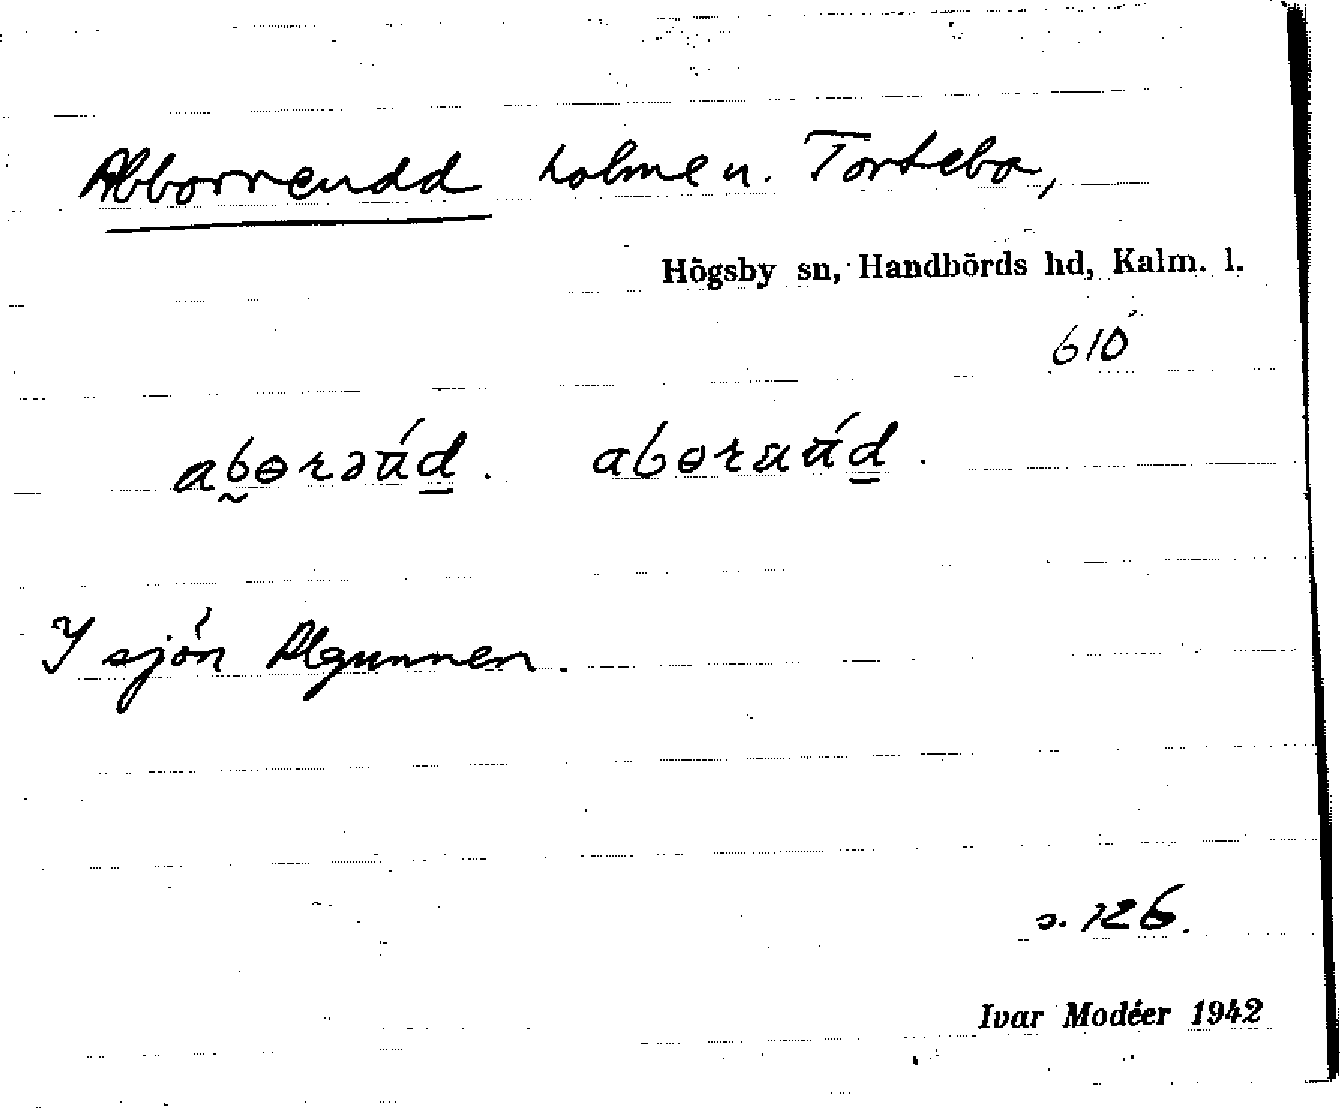 Abborreudd holme u. Tortebo,
Högsby sn, Handbörds hd, Kalm. l.
610
abɵrəúd. abɵruúd.
I sjön Algunnen.
s. 126.
Ivar Modéer 1942